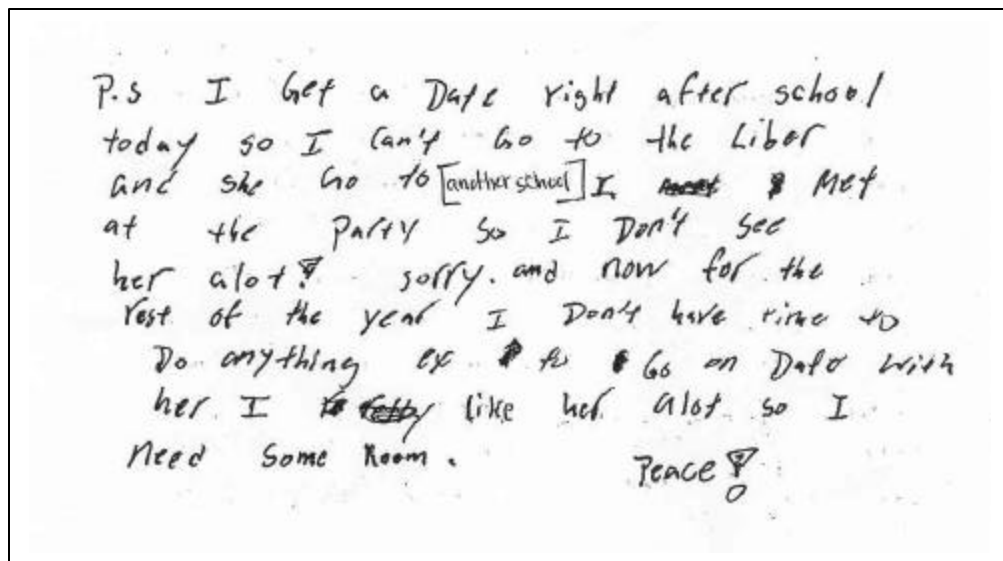 P.S I Get a Date right after school
today so I Can't Go to the Liber
and she Go to [another school] I Met
at the Party so I Don't see
her alot! sorry. and now for the
rest of the year I Don't have time to
Do anything ex to Go on Date with
her I like her alot so I
need some Room.
Peace!